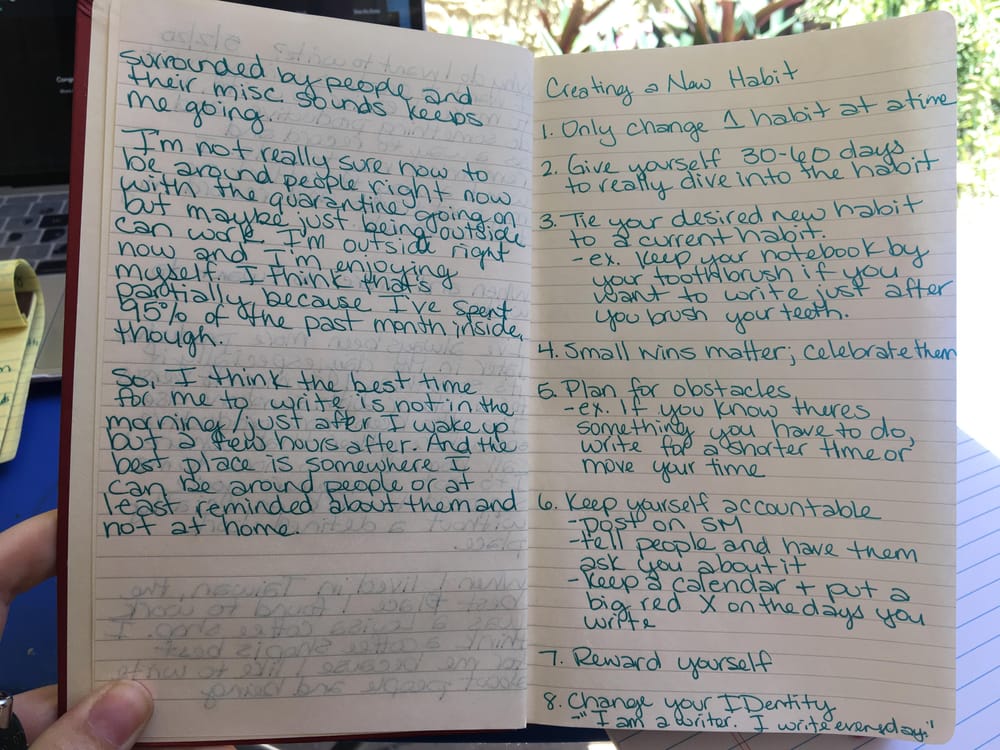 surrounded by people and
their misc. sounds keeps
me going.
I'm not really sure how to
be around people right now
with the quarantine going on,
but maybe just being outside
can work. I'm outside right
now and I'm enjoying
myself. I think that's
partially because I've spent
95% of the past month inside,
though.
So, I think the best time
for me to write is not in the
morning/just after I wake up
but a few hours after. And the
best place is somewhere I
can be around people or at
least reminded about them and
not at home.
Creating a New Habit
1. Only change 1 habit at a time
2. Give yourself 30-60 days
to really dive into the habit
3. Tie your desired new habit
to a current habit.
-ex. keep your notebook by
your toothbrush if you
want to write just after
you brush your teeth.
4. Small wins matter; celebrate them
5. Plan for obstacles
-ex. If you know theres
something you have to do,
write for a shorter time or
move your time
6. Keep yourself accountable
-post on SM
-tell people and have them
ask you about it
-keep a calendar + put a
big red X on the days you
write
7. Reward yourself
8. Change your IDentity
-"I am a writer. I write everyday."